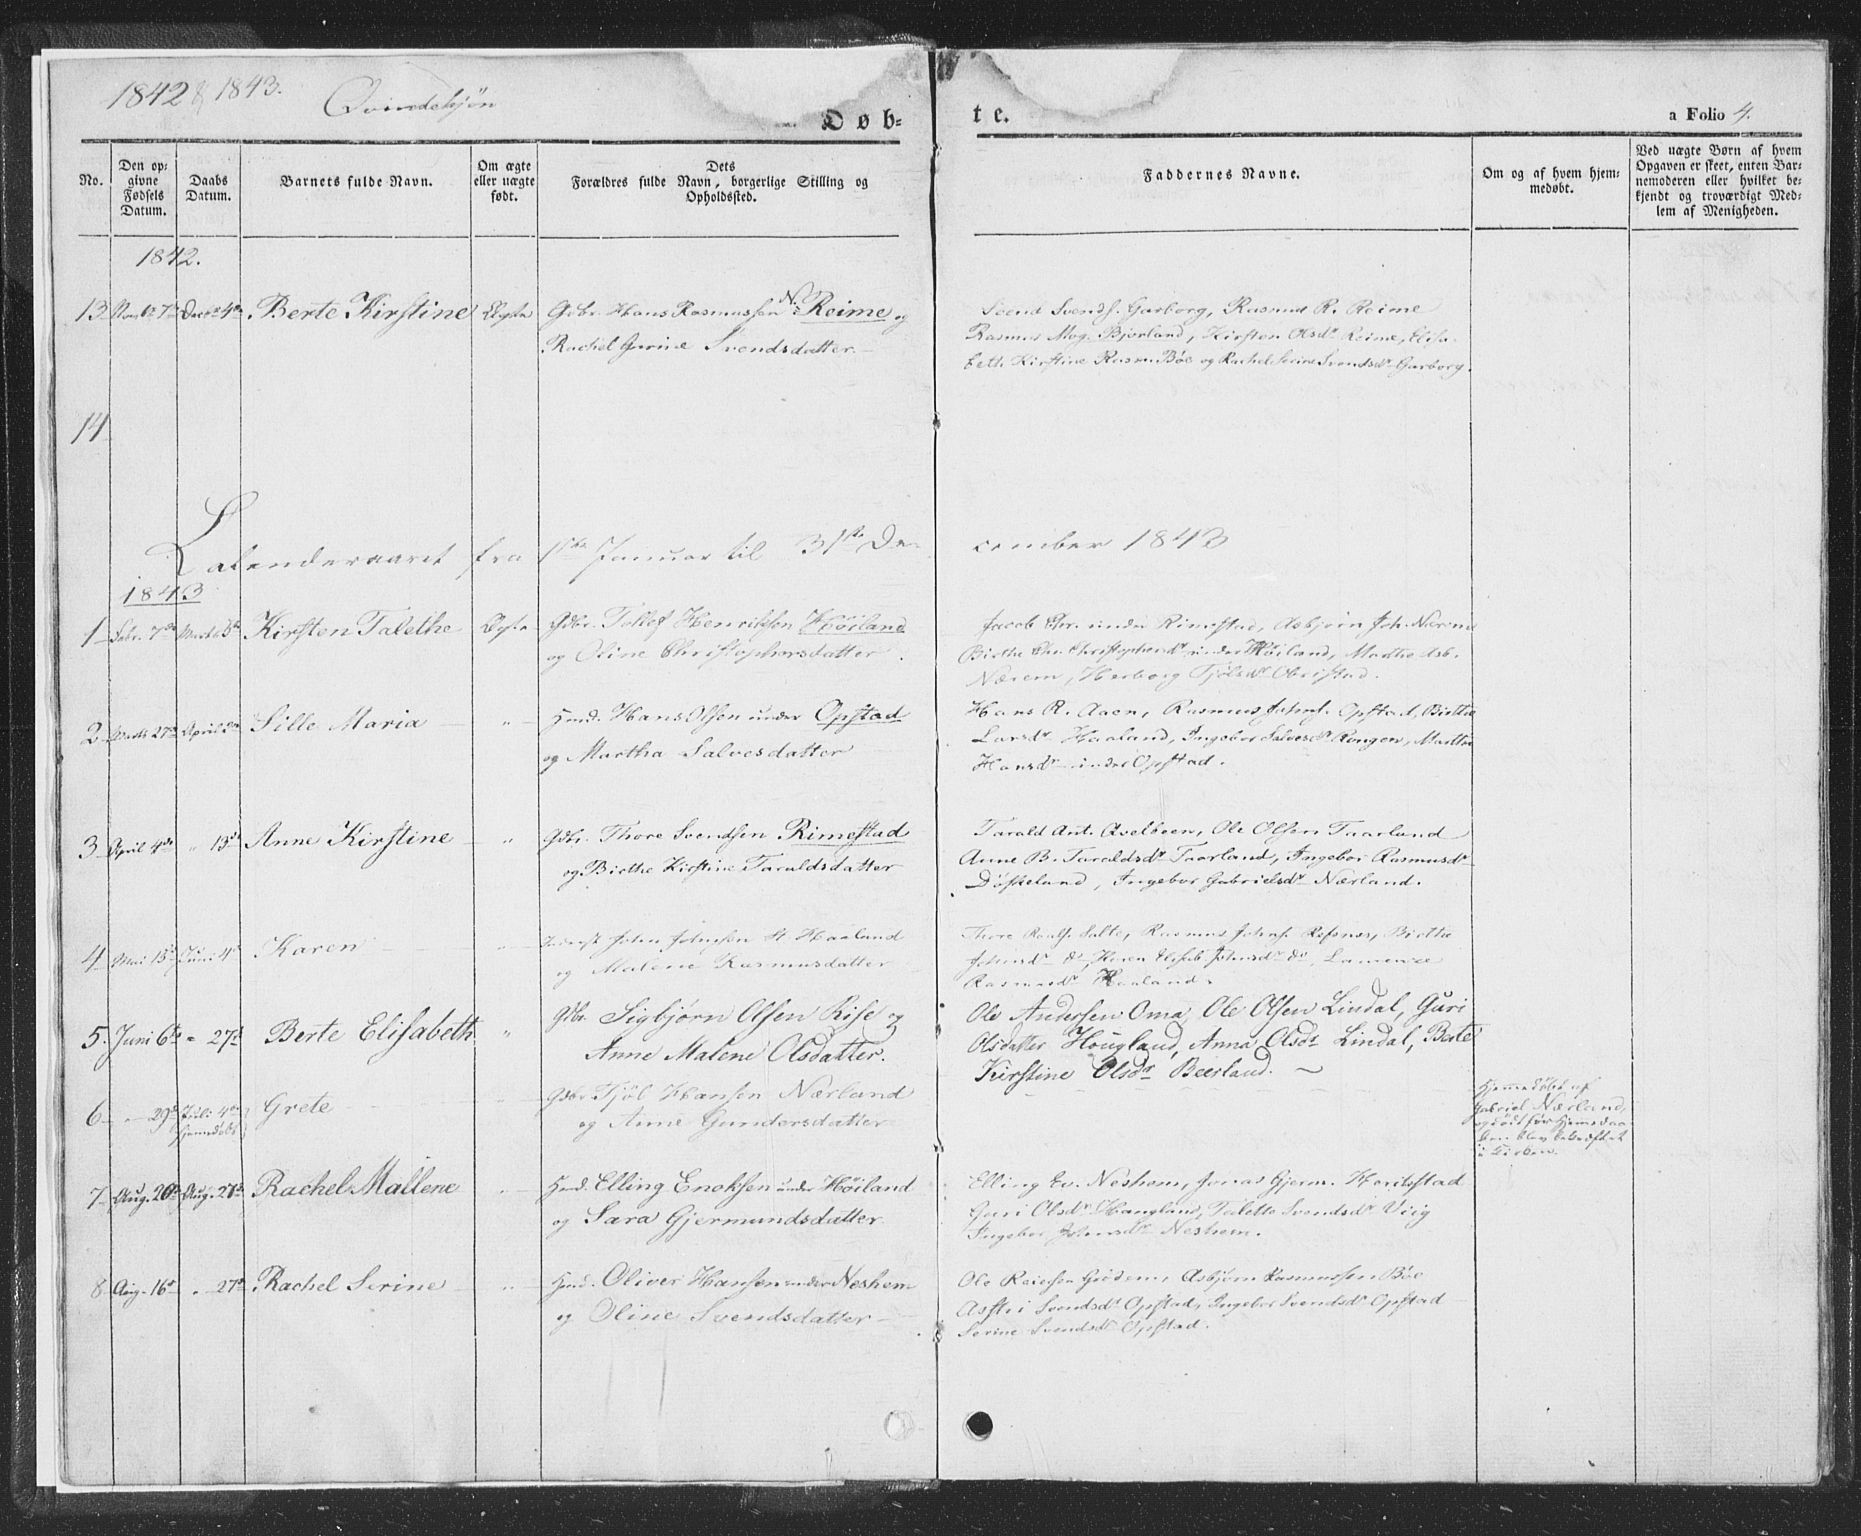 1842 & 1843. Qvindekjøn
Døb- te.
a Folio 4.
No.
Den op-
givne
Fødsels
Datum.
Daabs
Datum.
Barnets fulde Navn.
Om ægte
eller uægte
født.
Dets
Forældres fulde Navn, borgerlige Stilling og
Opholdssted.
Faddernes Navne.
Om og af hvem hjem-
medøbt.
Ved uægte Børn af hvem
Opgaven er skeet, enten Bar-
nemoderen eller hvilket be-
kjendt og troværdigt Med-
lem af Menigheden.
1842.
13 7de 4de Berte Kirstine Ægte Gdbr. Hans Rasmussen N. Reime og
Rachel Gurine Svendsdatter
Svend Svends. Garborg, Rasmus R. Reime
Rasmus Mog. Bjorland, Kirsten Olsdr Reime, Elisa-
beth Kirstine Rasm. Bøe og Rachel Serine Svendsdr Garborg.
14
Kalenderaaret fra 1ste Januar til 31te De- cember 1843
1843
1 Febr. 7de Marts 5te Kirsten Talethe Ægte Gdbr. Tollef Henriksen Höiland
og Oline Christophersdatter
Jacob Chr. under Rimestad, Asbjørn Joh. Nærem
Birthe Christophersdr under Höiland, Marthe Asb.
Nærem, Herborg Tjølsdr Obrestad.
2 Marts 27de April 2den Sille Maria " Hmd. Hans Olsen under Opstad
og Martha Salvesdatter
Hans R. Aaen, Rasmus Johns. Opstad, Birthe
Larsdr Haaland, Ingebor Salvesdr Ringen, Marthe
Hansdr under Opstad.
3 April 4de " 13de Anne Kirstine " Gdbr. Thore Svendsen Rimestad
og Birthe Kirstine Taraldsdatter
Tarald Ant. Auelbeen, Ole Olsen Taarland
Anne B. Taraldsdr Taarland, Ingebor Rasmusdr
Døskeland, Ingebor Gabrielsdr Nærland.
4 Mai 15de Juni 4de Karen " John Johnsen St. Haaland
og Malene Rasmusdatter
Thore Salte, Rasmus Johns. Refsnes, Birthe
Johnsdr do, Karen Elisab. Johnsdr do, Laurense
Rasmusdr Haaland.
5. Juni 6te " 27de Berte Elisabeth " Gdbr. Sigbjørn Olsen Rise og
Anne Malene Olsdatter.
Ole Andersen Oma, Ole Olsen Lindal, Guri
Olsdatter Hougland, Anna Olsdr Lindal, Berte
Kirstine Olsdr Beerland.
6 " 29de Juli 4de Grete Gdbr. Tjøl Hansen Nærland
hjemdøbt og Anne Gundersdatter
Hjemmedøbt af
Gabriel Nærland,
og død før Hjemmedaa-
ben blev bekræftet
i Kirken.
7 Aug. 20de Aug. 27de Rachel Mallene " Hmd. Elling Enoksen under Höiland
og Sara Gjermundsdatter
Elling Ev. Neshem, Jonas Gjerm. Haritstad
Guri Olsdr Haugland, Talette Svendsdr Viig
Ingebor Johnsdr Neshem.
8 Aug. 16de " 27de Rachel Serine " Hmd. Oliver Hansen under Neshem
og Oline Svendsdatter
Ole Reiersen Grødem, Asbjørn Rasmussen Bøe
Astri Svendsdr Opstad, Ingebor Svendsdr Opstad
Serine Svendsdr Opstad.